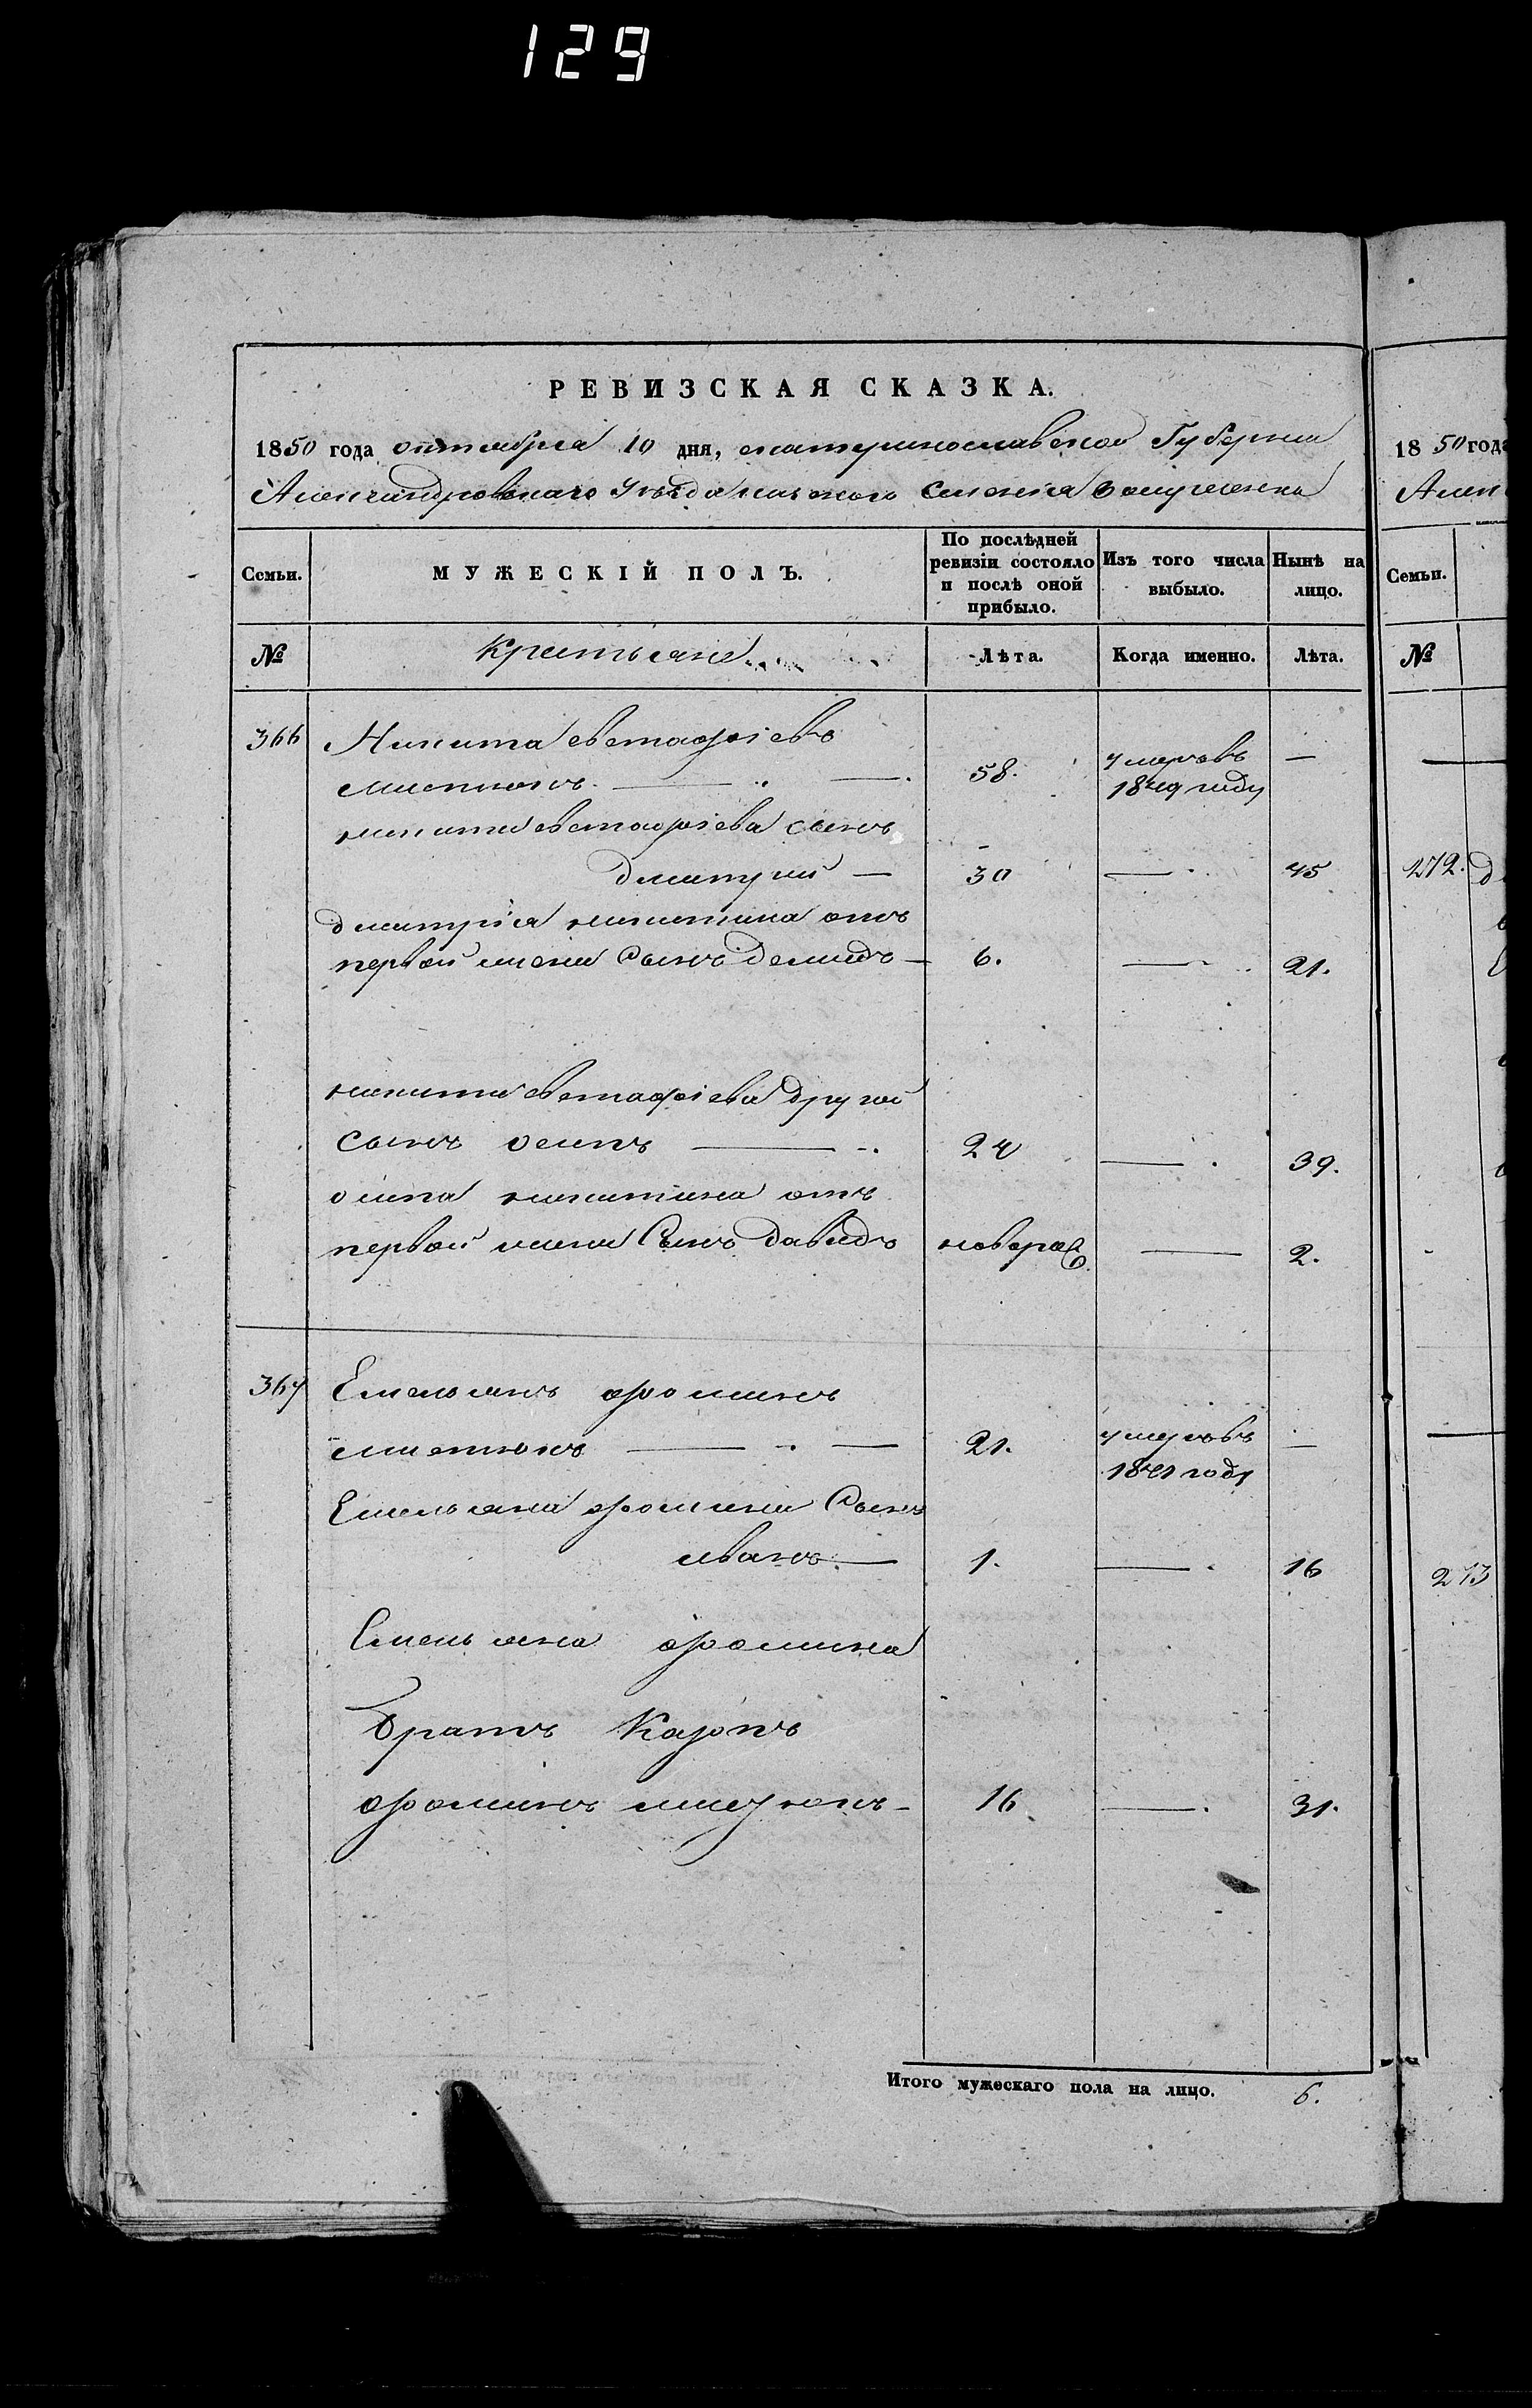 129
РЕВИЗСКАЯ СКАЗКА.
1850 года октября 10 дня, екатеринославской Губернии
Александровского Уѣзда селенія
Семьи.
МУЖЕСКІЙ ПОЛЪ.
По послѣдней ревизіи состояло и послѣ оной прибыло.
Изъ того числа выбыло.
Нынѣ на лицо.
№
Крестьяне
Лѣта.
Когда именно.
Лѣта.
366 Никита евстафіевъ
58. умеръ въ —
1849 году
никиты евстафіева сынъ
дмитрий — 30 — 45
дмитрія никитина отъ
первой жены Сынъ демидъ — 6. — 21.
никиты евстафіева другой
сынъ осипъ — 24 — 39.
осипа никитина отъ
первой жены Сынъ давидъ новорож — 2.
367 Емельянъ фоминъ
21. умеръ въ —
1841 году
Емельяна фомина Сынъ
иванъ — 1. — 16
Емельяна фомина
братъ Карпъ
фоминъ 16 — 31.
Итого мужескаго пола на лицо. 6.
18 50 года
Алек
Семьи.
№
272.
273